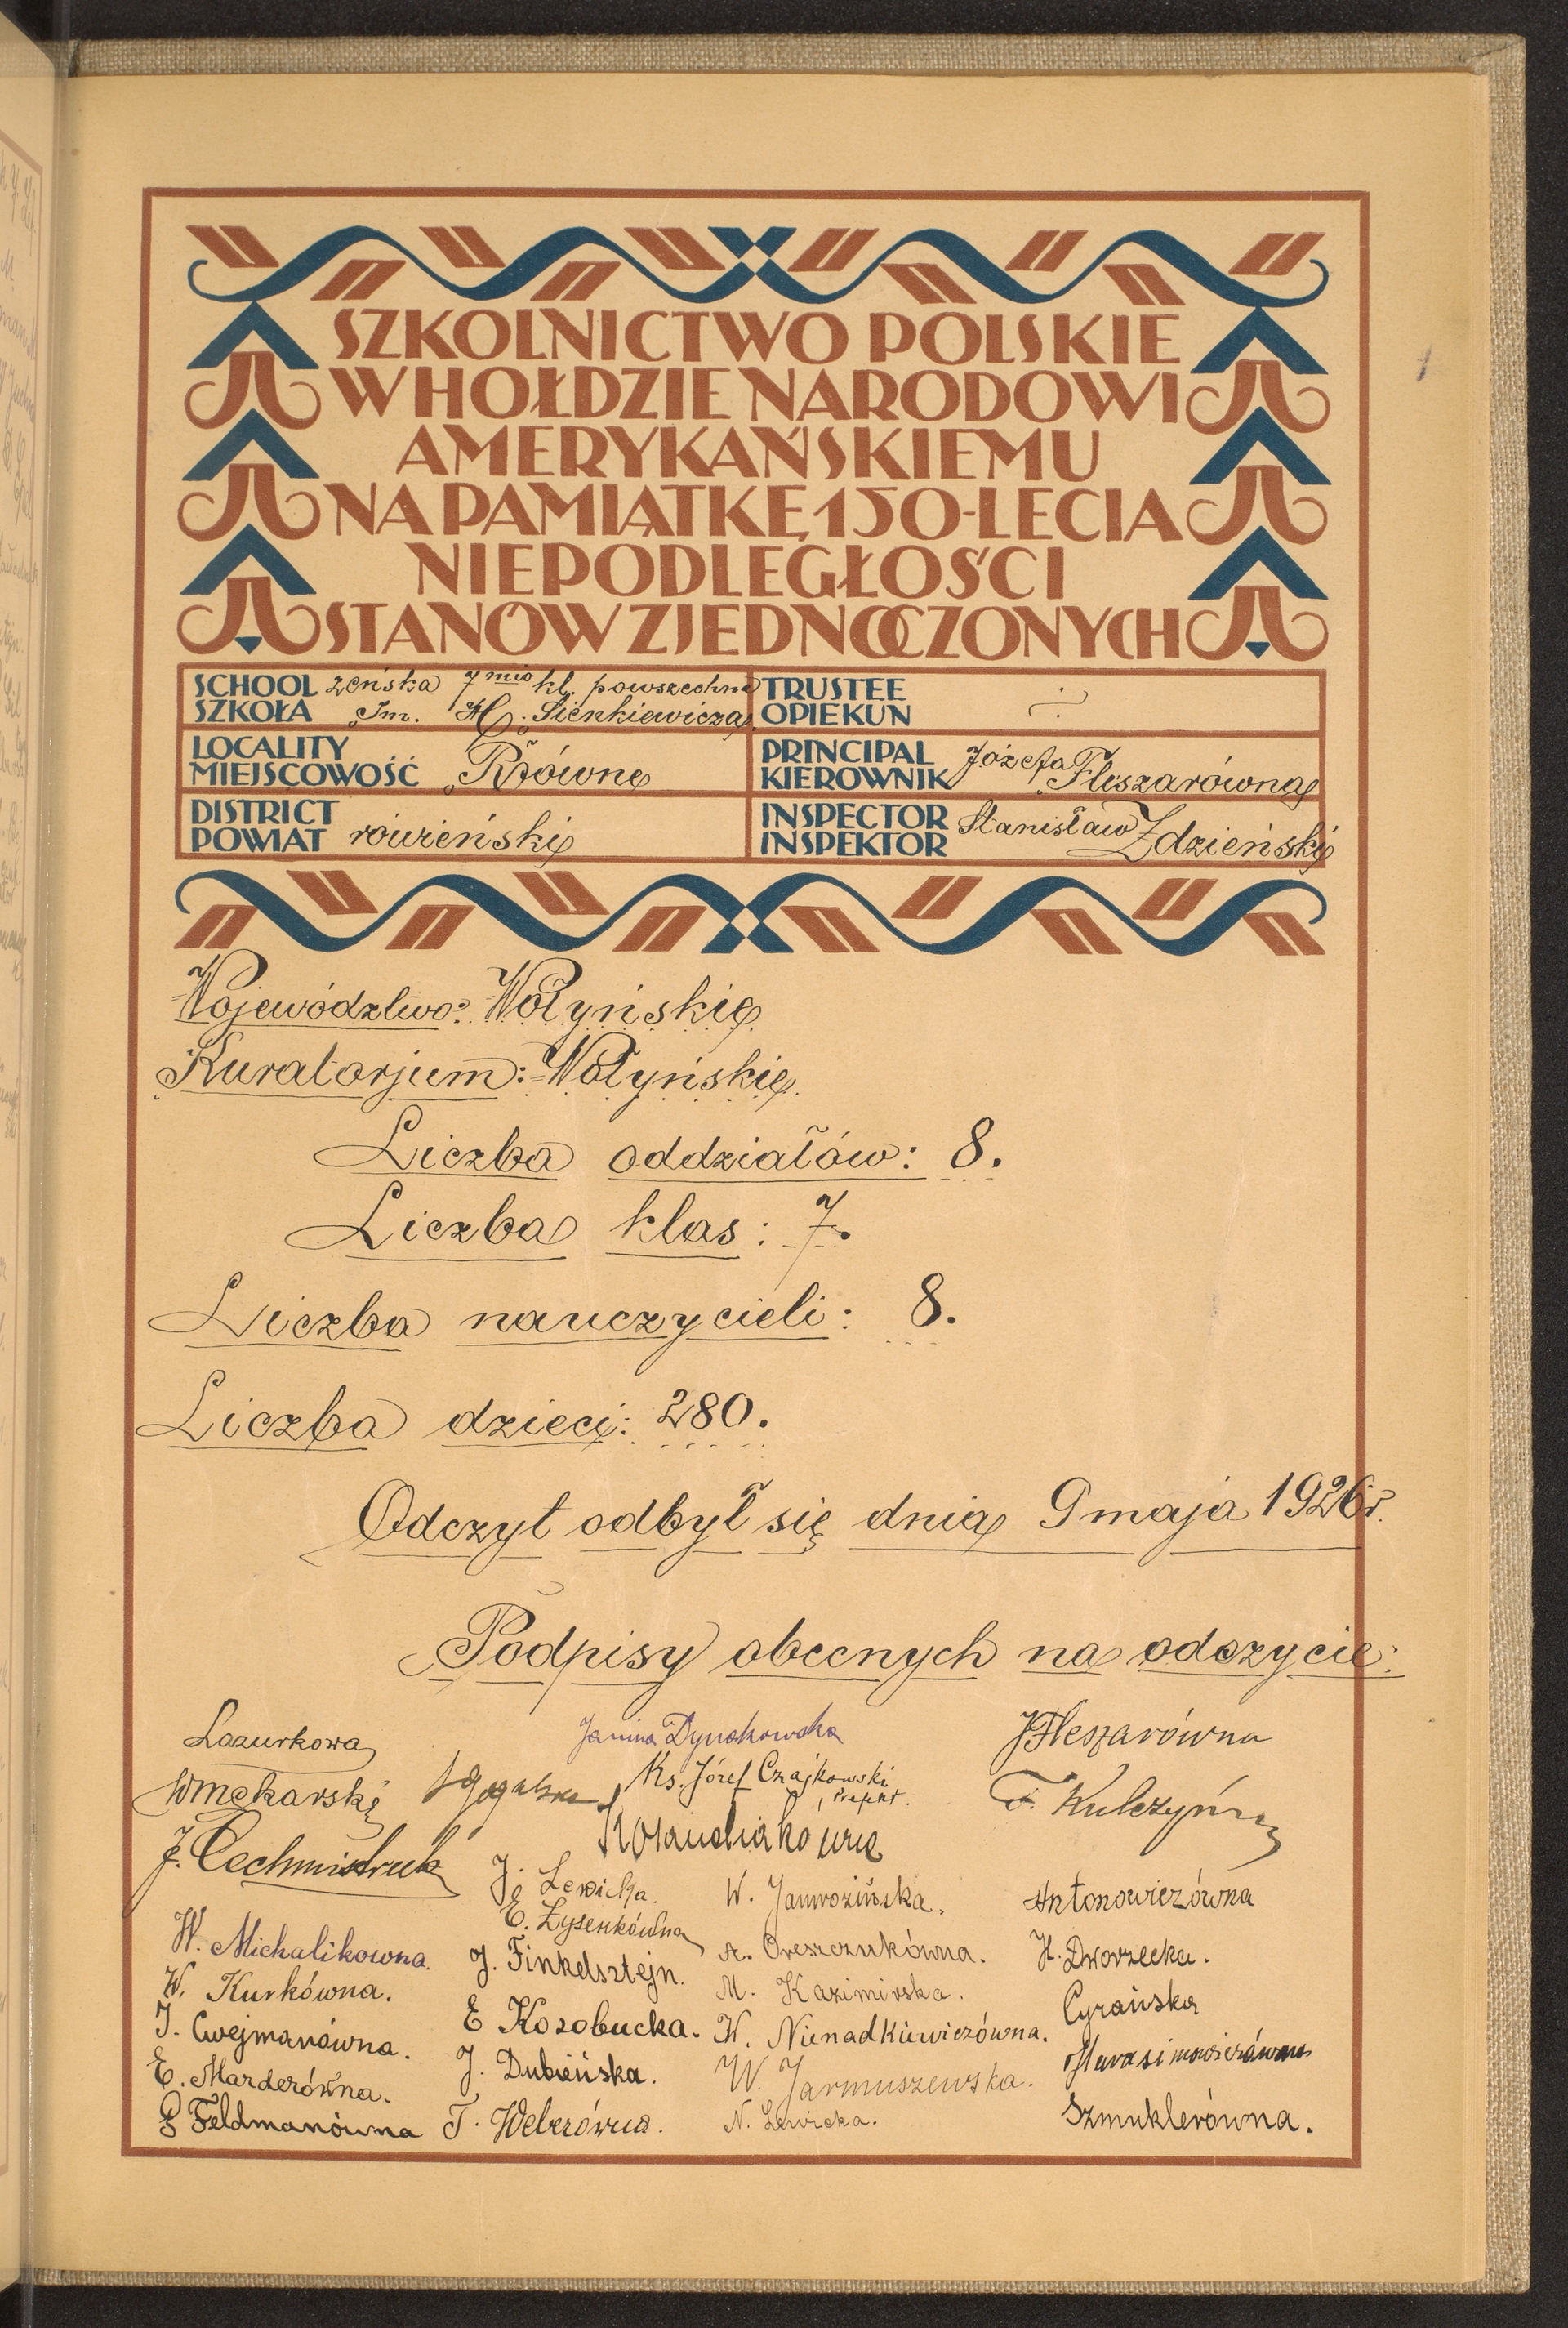 SZKOLNICTWO POLSKIE
W HOŁDZIE NARODOWI
AMERYKAŃSKIEMU
NA PAMIĄTKĘ 150-LECIA
NIEPODLEGŁOŚCI
STANÓW ZJEDNOCZONYCH
SCHOOL żeńska 7mio kl. powszechna
SZKOŁA „Im. H. Sienkiewicza"
TRUSTEE
OPIEKUN
LOCALITY
MIEJSCOWOŚĆ Równe
PRINCIPAL Józefa
KIEROWNIK Fleszarówna
DISTRICT
POWIAT rówieński
INSPECTOR Stanisław
INSPEKTOR Zdzieński
Województwo: Wołyńskie
Kuratorjum: Wołyńskie
Liczba oddziałów: 8.
Liczba klas: 7.
Liczba nauczycieli: 8.
Liczba dzieci: 280.
Odczyt odbył się dnia 9 maja 1926 r.
Podpisy obecnych na odczycie:
Lazurkowa
Janina Dynakowska
J Fleszarówna
W Mękarski
Ks. Józef Czajkowski
Prefekt.
J. Cechmistruk
J. Lewicka.
W. Jamrozińska.
Antonowiczówna
E. Łysenkówna
W. Michalikowna.
J. Finkelsztejn.
A. Oreszczukówna.
H. Dworzecka.
W. Kurkówna.
E Kozobucka.
M. Kazimirska.
Cyrańska
J. Cwejmanówna.
J. Dubieńska.
K. Nienadkiewiczówna.
E. Marderówna.
W. Jarmuszewska.
P Feldmanówna
T. Weberówna.
N. Lewicka.
Szmuklerówna.